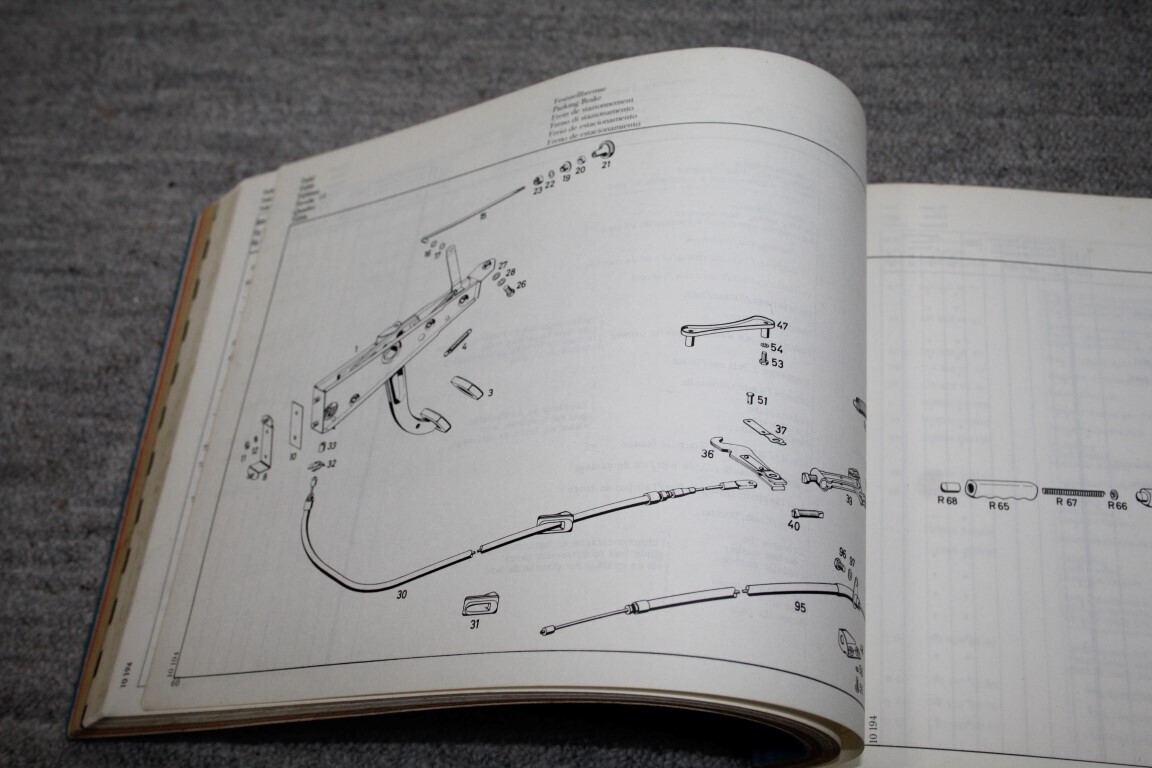 Feststellbremse
Parking Brake
Frein de stationnement
Freno di stazionamento
Freio de estacionamento
Freno de estacionamiento
21
20
19
22
23
15
16
17
27
28
26
1
4
3
47
54
53
51
37
36
33
32
10
30
31
40
39
96
97
95
R 68
R 65
R 67
R 66
10 194
10 194
10 194